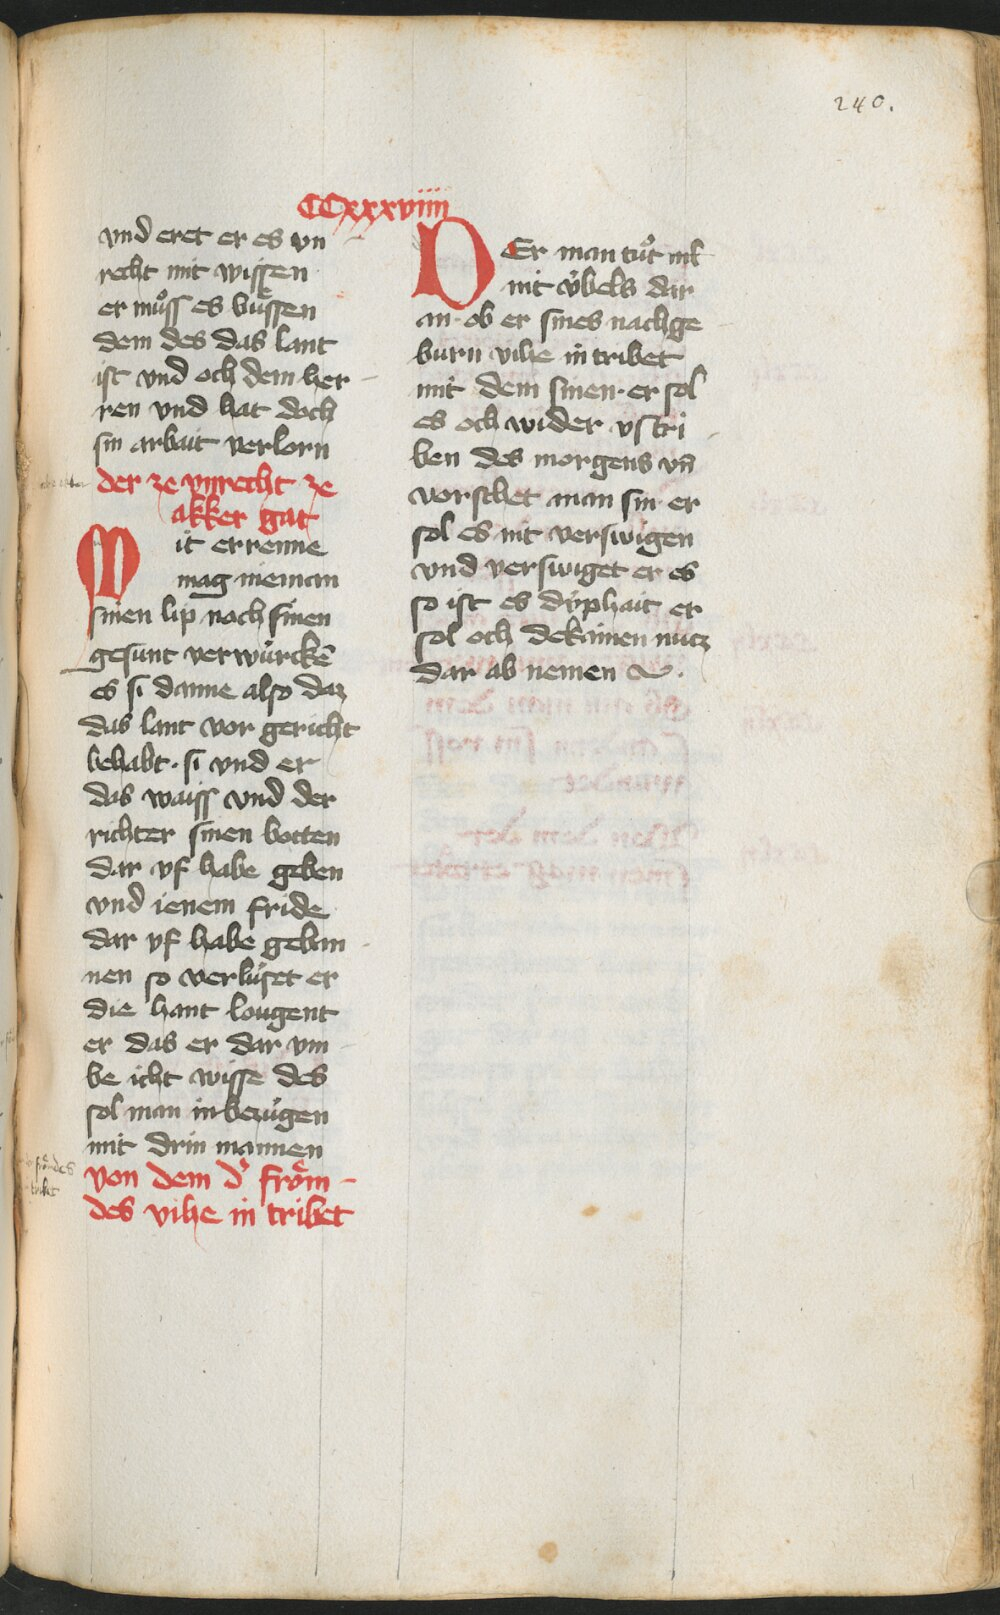 240.
CCxxxviiii
vnd eret er es vn
recht mit wissen
er muͦss es buͤssen
dem des das lant
ist vnd och dem her
ren vnd hat doch
sin arbait verlorn
der ze vnrecht ze
akker gat
Mit errenne
mag nieman
sinen lip noch sinen
gesunt verwúrckē
es si danne also daz
das lant vor gericht
behabt · si vnd er
das waiss vnd der
richter sinen botten
dar vf habe geben
vnd ienem fride
dar vf habe geban
nen so verlúset er
die hant lougent
er das er dar vm
be icht wisse des
sol man in bezúgen
mit drin mannen
von dem d͛ froͤm
des vihe in tribet
DEr man tuͦt
nit v́bels dar
an · ob er sines nachge
burn vihe in tribet
mit dem sinen · er sol
es och wider vs tri
ben des morgens vn̄
vorschet man sin er
sol es nit verswigen
vnd verswiget er es
so ist es dyphait er
sol och dekainen nutz
dar ab nemen
froͤmdes
tribet